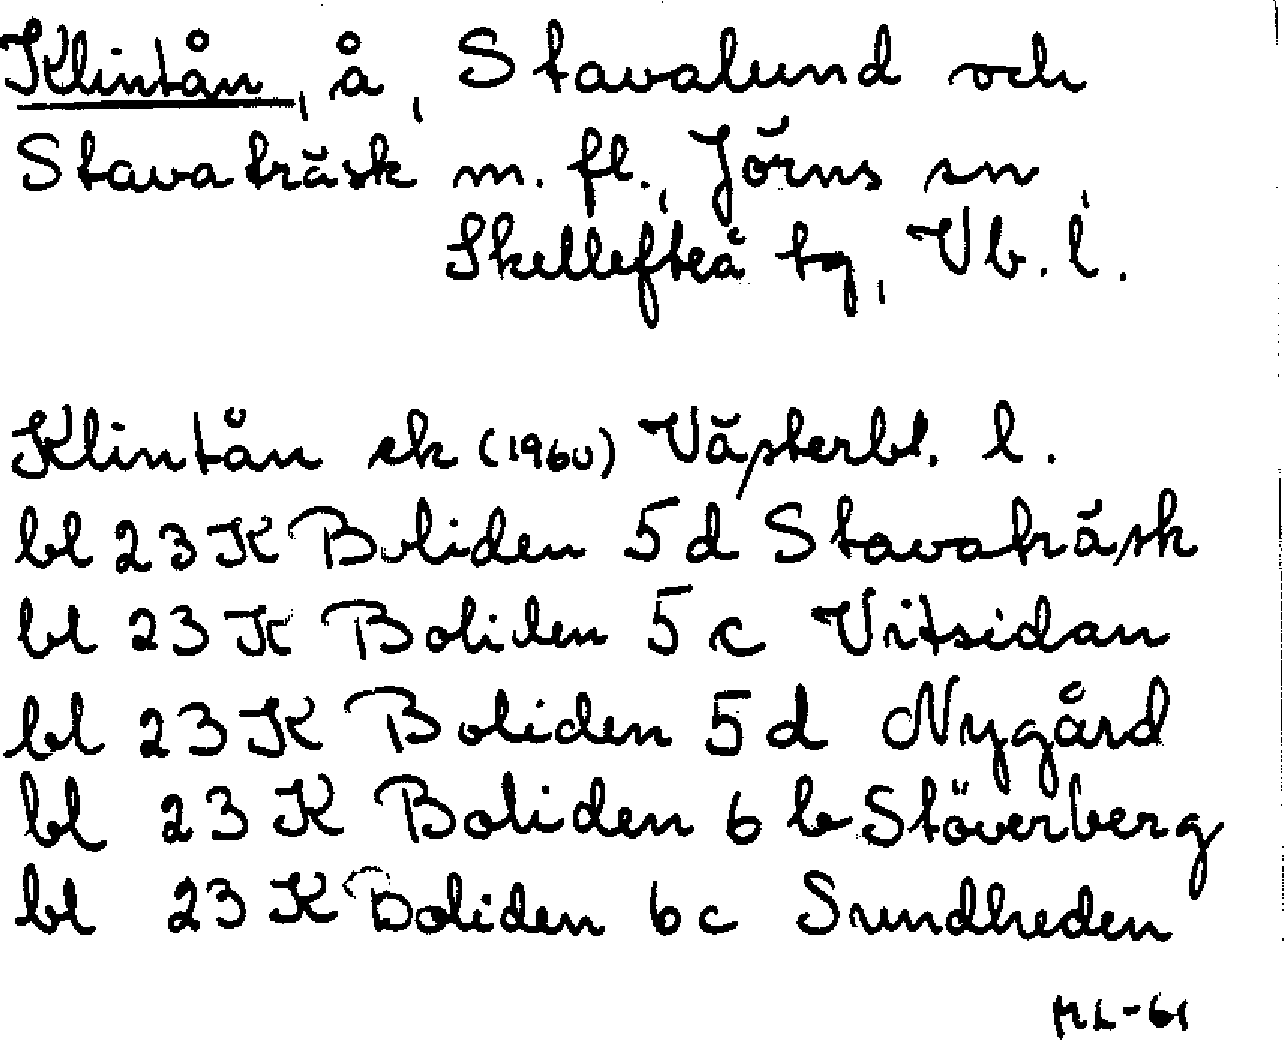 Klintån, å, Stavalund och
Stavaträsk m. fl., Jörns sn,
Skellefteå tg, Vb. l.
Klintån ek (1960) Västerbt. l.
bl 23 K Boliden 5 d Stavaträsk
bl 23 K Boliden 5 c Vitsidan
bl 23 K Boliden 5 d Nygård
bl 23 K Boliden 6 b Stöverberg
bl 23 K Boliden 6 c Sundheden
ML-61